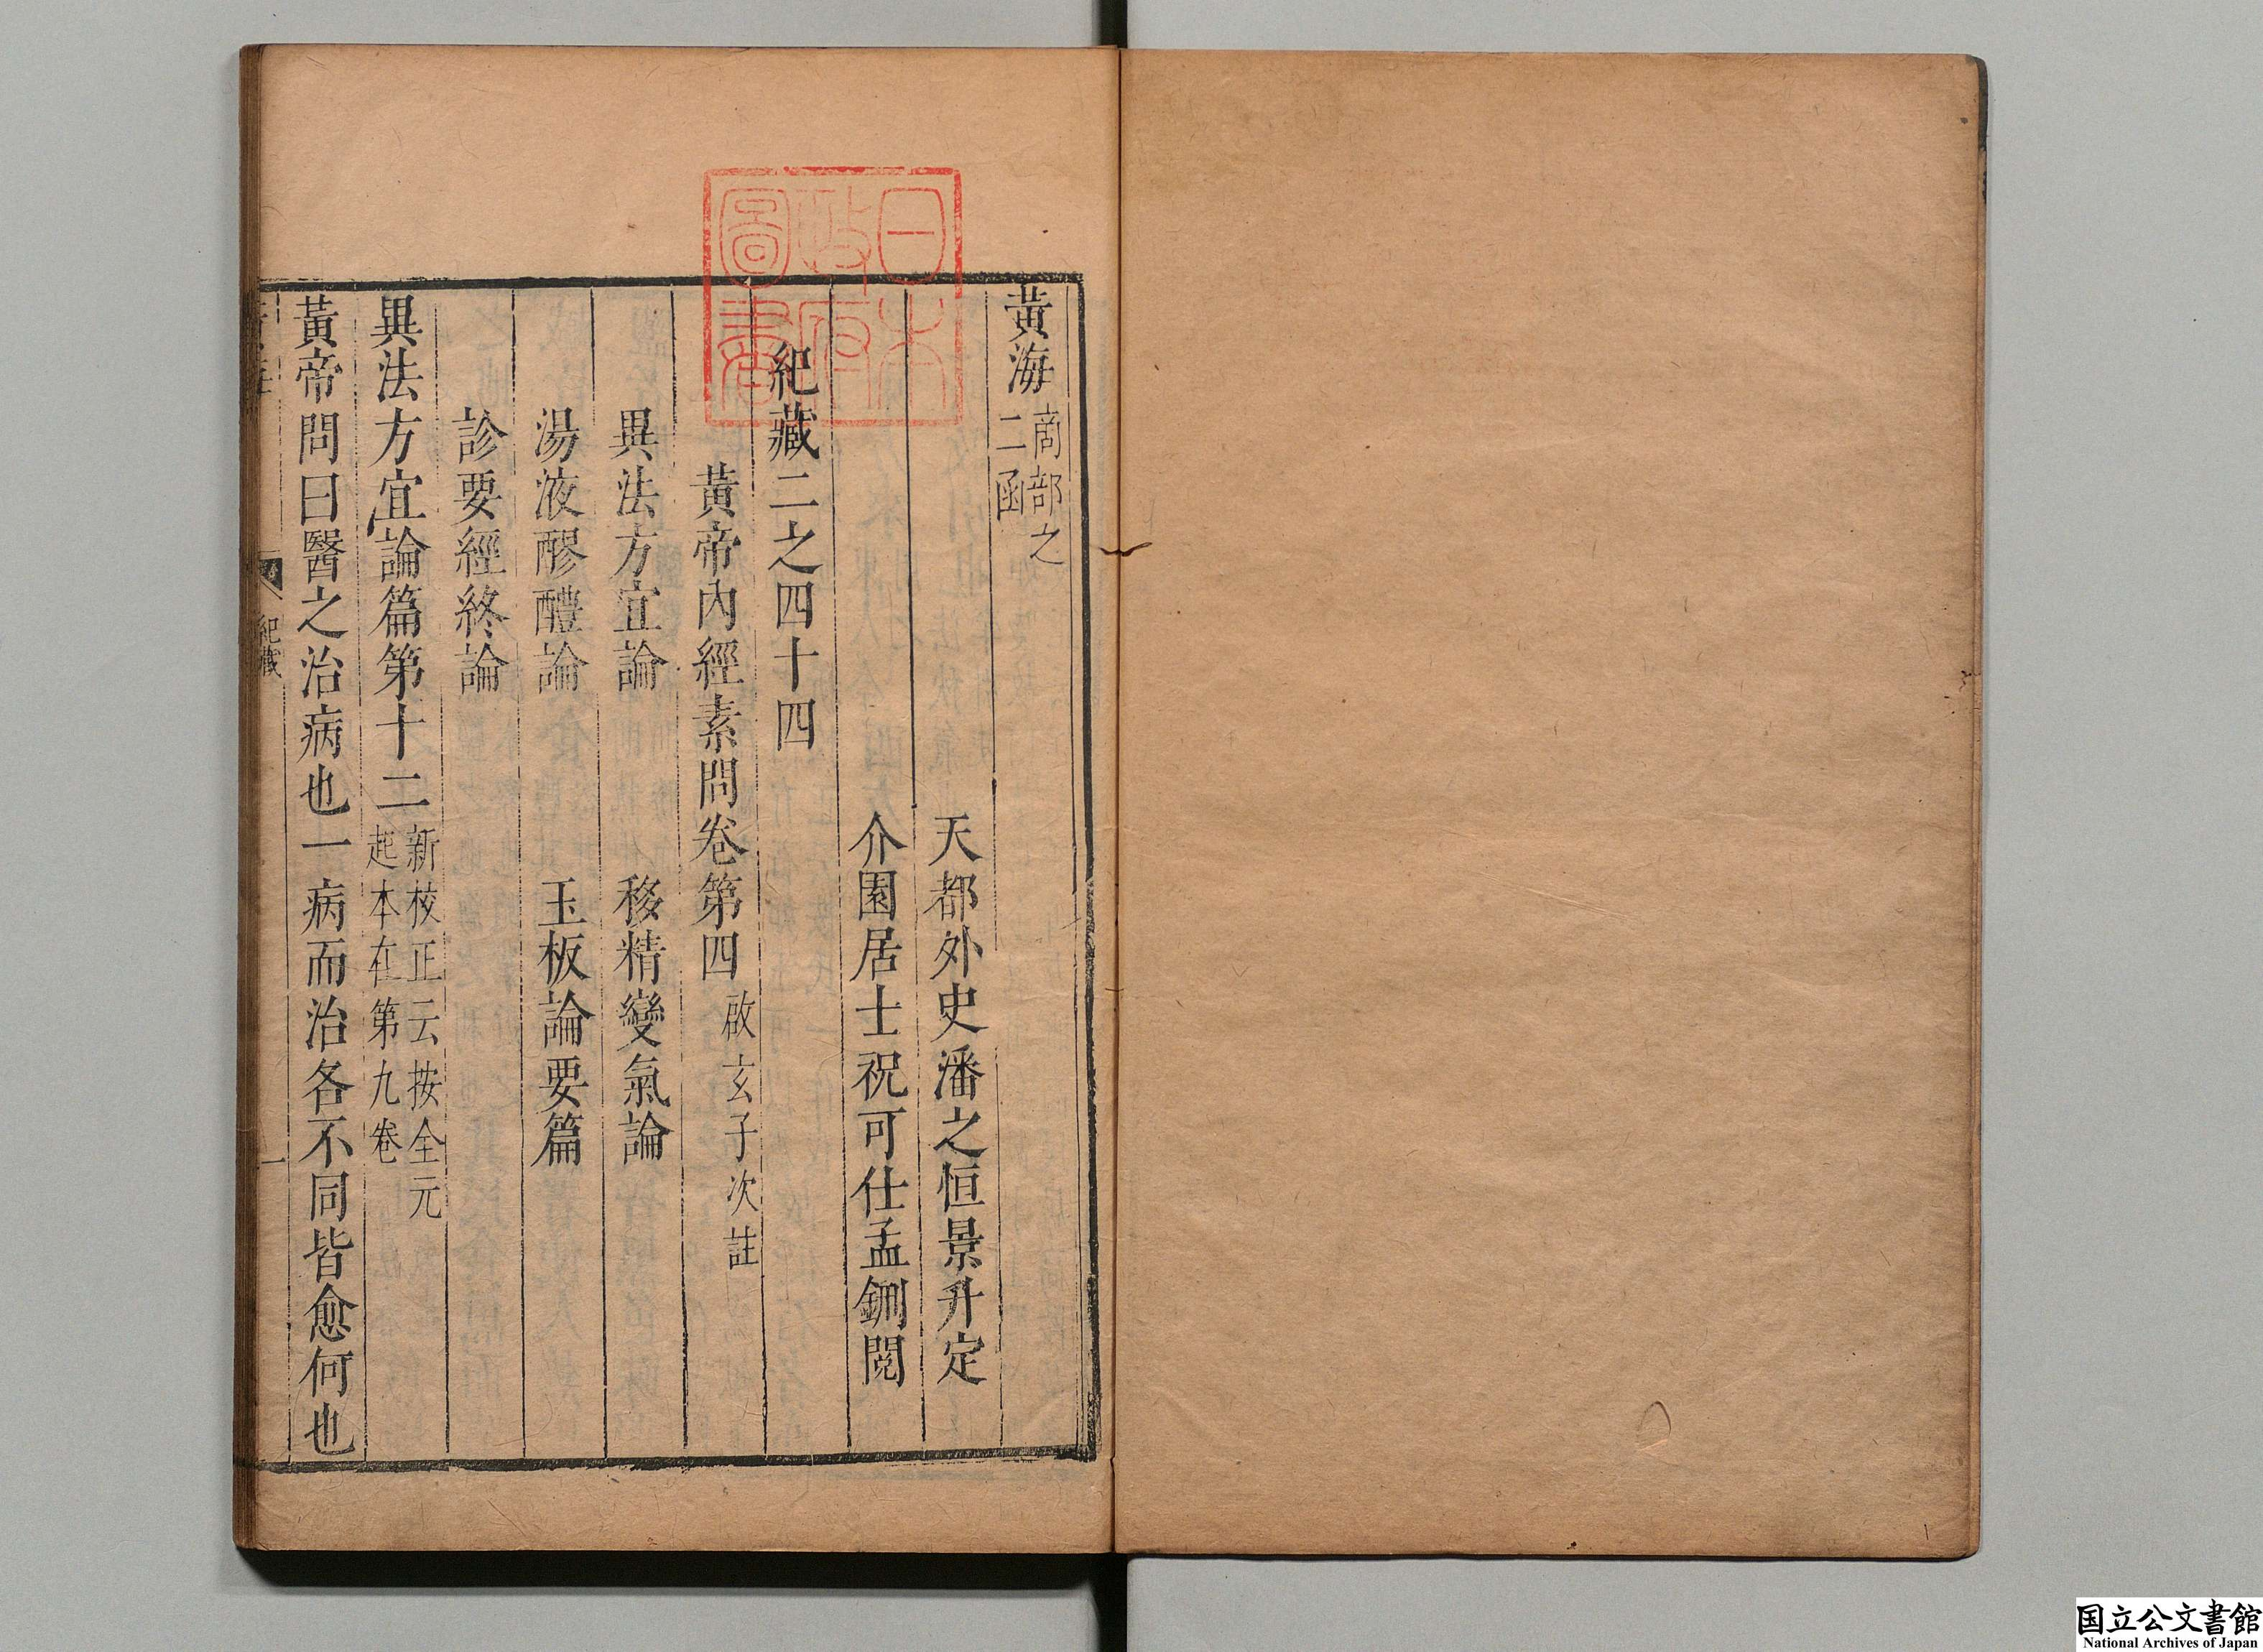 黃海 商部之二函
天都外史潘之恒景升定
介園居士祝可仕孟鉶閱
紀藏二之四十四
黃帝內經素問卷第四 啟玄子次註
異法方宜論 移精變氣論
湯液醪醴論 玉板論要篇
診要經終論
異法方宜論篇第十二 新校正云按全元起本在第九卷
黃帝問曰醫之治病也一病而治各不同皆愈何也
紀藏 一
日本政府圖書
国立公文書館
National Archives of Japan